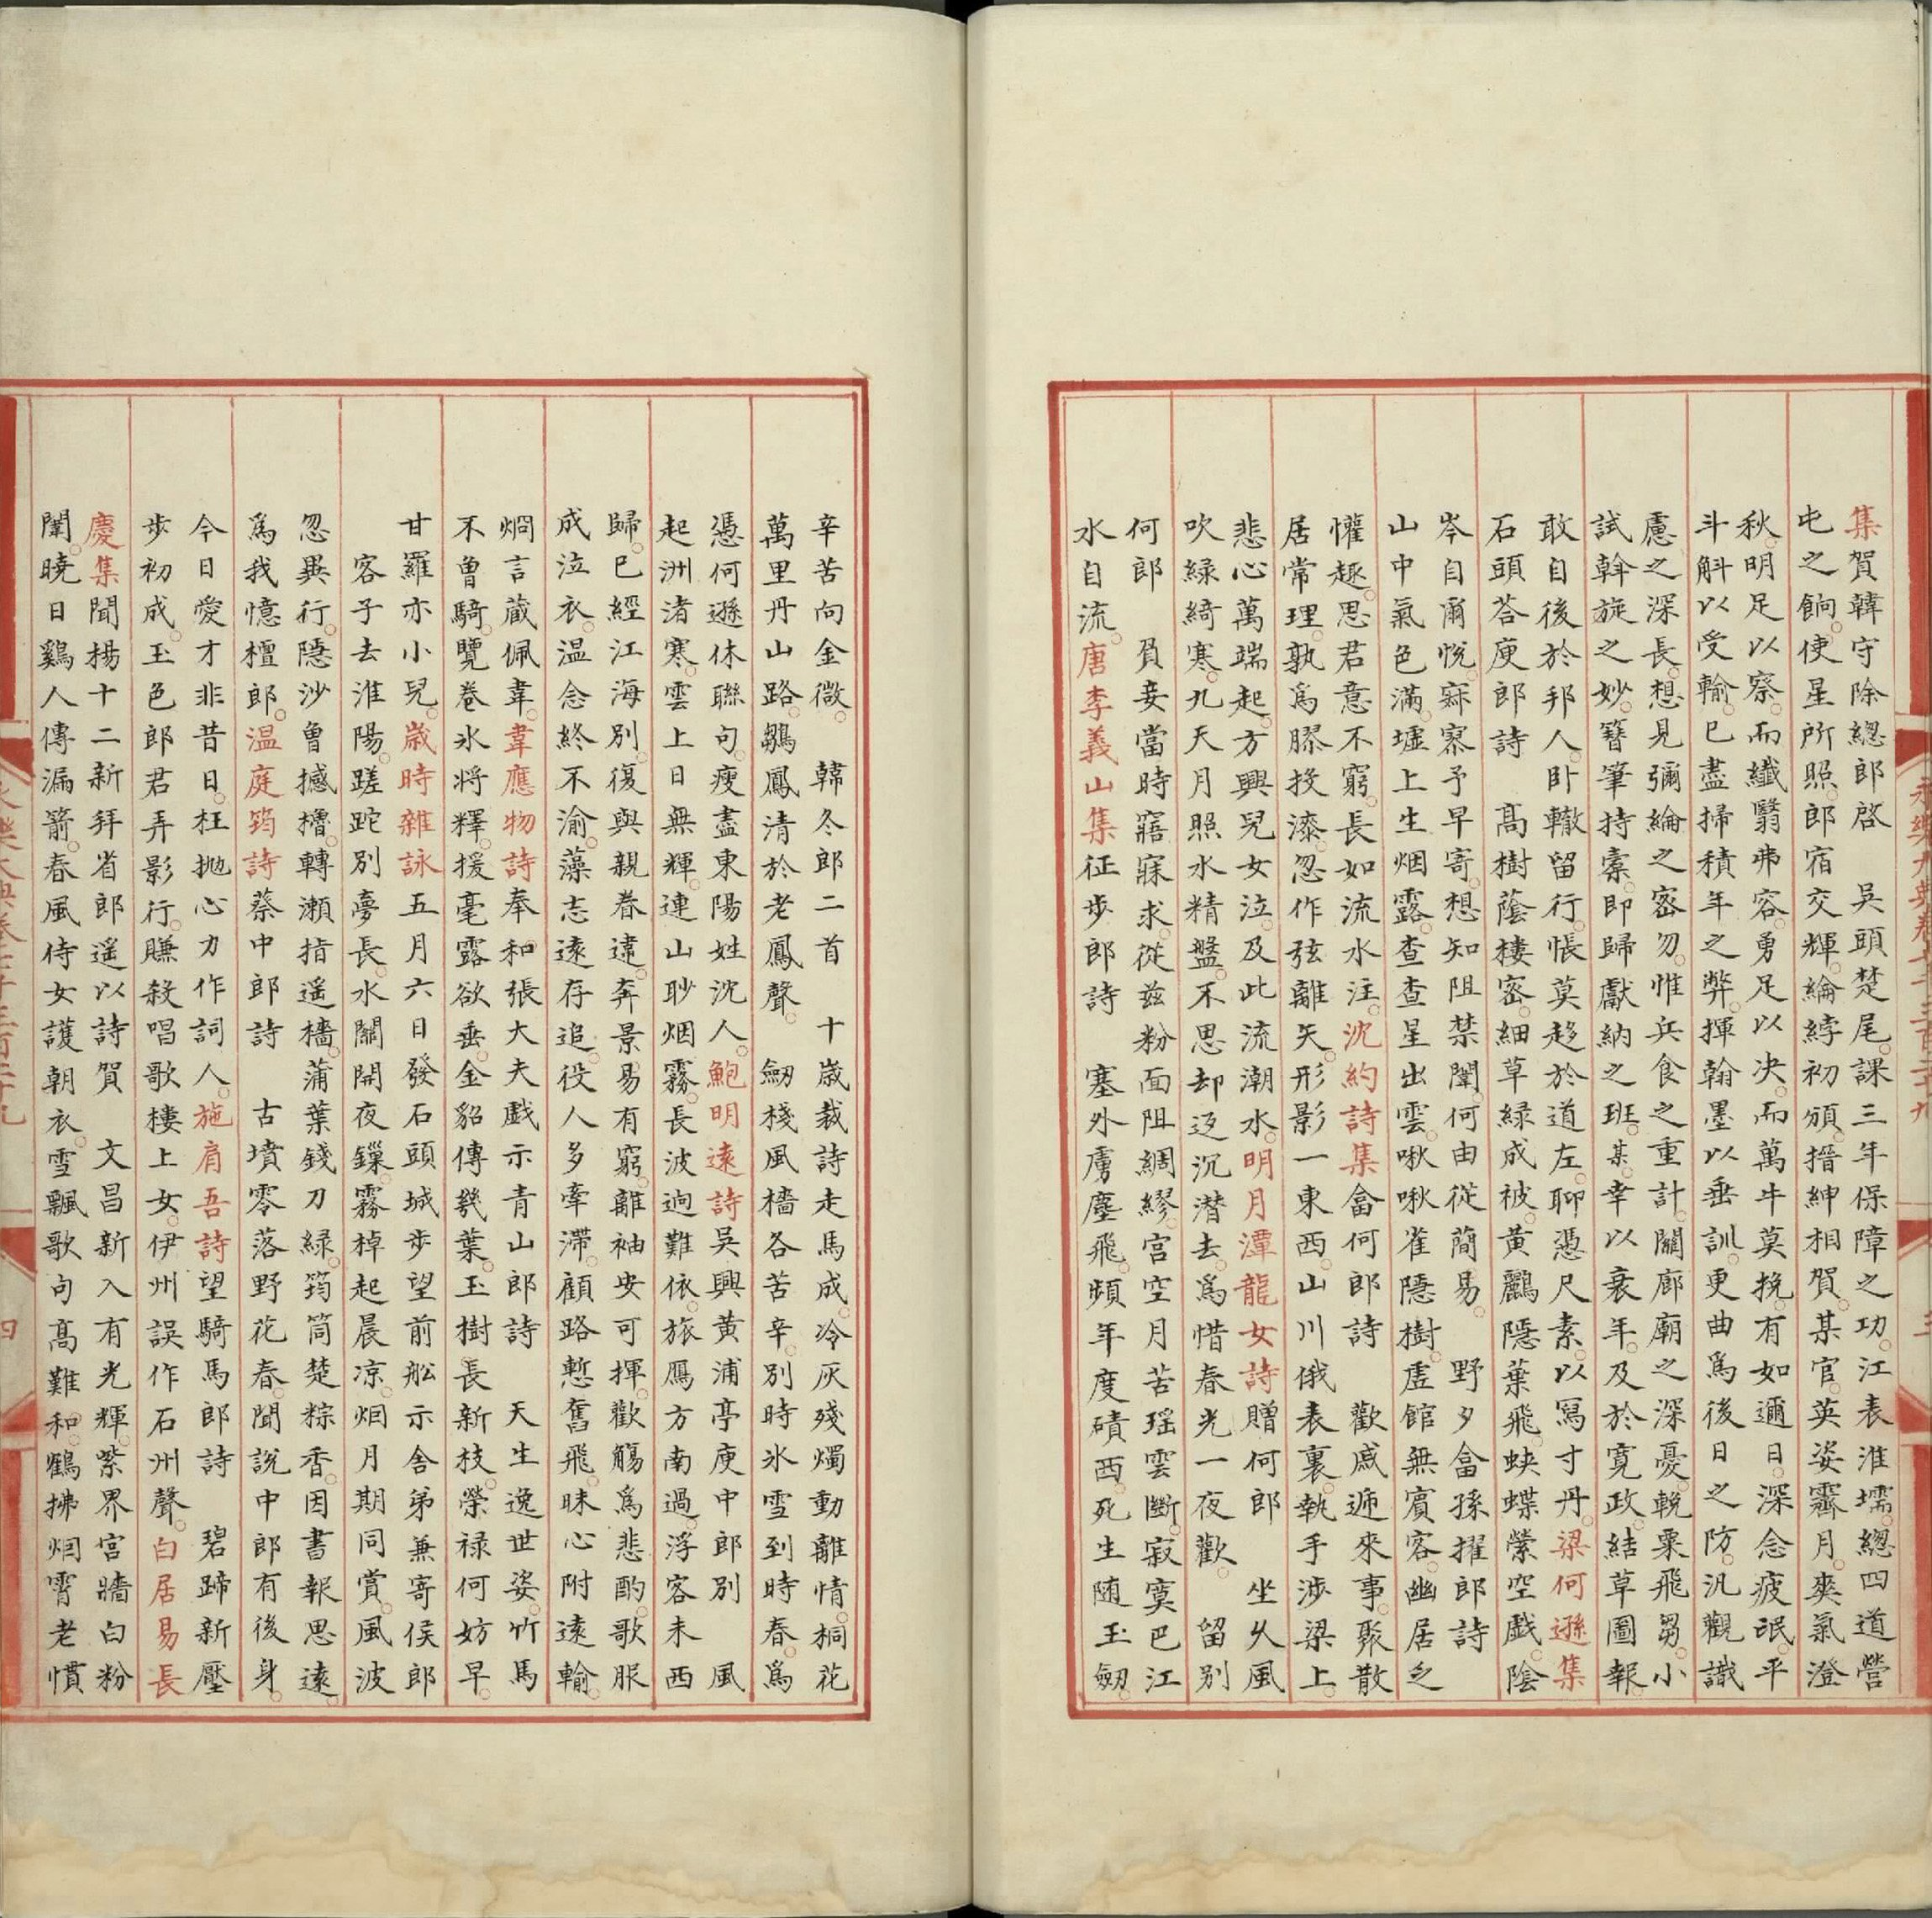 集賀韓守除總郎啓　吳頭楚尾。課三年保障之功。江表淮壖。總四道營
屯之餉。使星所照。郎宿交輝。綸綍初頒。搢紳相賀。某官。英姿霽月。爽氣澄
秋。明足以察。而纖翳弗容。勇足以決。而萬牛莫挽。有如邇日。深念疲氓。平
斗斛以受輸。已盡掃積年之弊。揮翰墨以垂訓。更曲爲後日之防。汎觀識
慮之深長。想見彌綸之密勿。惟兵食之重計。關廊廟之深憂。輓粟飛芻。小
試斡旋之妙。簪筆持橐。即歸獻納之班。某。幸以衰年。及於寬政。結草圖報。
敢自後於邦人。卧轍留行。悵莫趍於道左。聊憑尺素。以寫寸丹。梁何遜集
石頭荅庾郎詩　高樹蔭樓密。細草緑成被。黃鸝隱葉飛。蛺蝶縈空戲。陰
岑自爾悅。寂寥予早寄。想知阻禁闈。何由從簡易。　野夕畣孫擢郎詩
山中氣色滿。墟上生烟露。查查星出雲。啾啾雀隱樹。虛館無賓客。幽居乏
懽趣。思君意不窮。長如流水注。沈約詩集畣何郎詩　歡戚遞來事。聚散
居常理。孰爲膠投漆。忽作弦離矢。形影一東西。山川俄表裏。執手渉梁上。
悲心萬端起。方興兒女泣。及此流潮水。明月潭龍女詩贈何郎　坐久風
吹緑綺寒。九天月照水精盤。不思却返沉潜去。爲惜春光一夜歡。　留别
何郎　負妾當時寤寐求。從兹粉面阻綢繆。宮空月苦瑶雲斷。寂寞巴江
水自流。唐李義山集征步郎詩　塞外虜塵飛。頻年度磧西。死生随玉劒。
辛苦向金微。　韓冬郎二首　十歳裁詩走馬成。冷灰殘燭動離情。桐花
萬里丹山路。鶵鳳清於老鳳聲。　劒棧風檣各苦辛。别時氷雪到時春。爲
憑何遜休聯句。瘦盡東陽姓沈人。鮑明遠詩吳興黃浦亭庾中郎别　風
起洲渚寒。雲上日無輝。連山眇烟霧。長波迥難依。旅鴈方南過。浮客未西
歸。已經江海别。復與親眷違。奔景易有窮。離袖安可揮。歡觴爲悲酌。歌服
成泣衣。温念終不渝。藻志遠存追。役人多牽滯。顧路慙奮飛。昧心附遠輸。
烱言藏佩韋。韋應物詩奉和張大夫戲示青山郎詩　天生逸世姿。竹馬
不曾騎。覽卷氷將釋。援毫露欲垂。金貂傳㡬葉。玉樹長新枝。榮禄何妨早。
甘羅亦小兒。歳時雜詠五月六日發石頭城步望前舩示舎弟兼寄侯郎
客子去淮陽。蹉跎别夢長。水關開夜鏁。霧棹起晨凉。烟月期同賞。風波
忽異行。隱沙曾撼櫓。轉瀬指遥檣。蒲葉錢刀緑。筠筒楚粽香。因書報思遠。
爲我憶檀郎。温庭筠詩蔡中郎詩　古墳零落野花春。聞說中郎有後身。
今日愛才非昔日。枉抛心力作詞人。施肩吾詩望騎馬郎詩　碧蹄新壓
步初成。玉色郎君弄影行。賺殺唱歌樓上女。伊州誤作石州聲。白居易長
慶集聞楊十二新拜省郎遥以詩賀　文昌新入有光輝。紫界宮牆白粉
闈。曉日鷄人傳漏箭。春風侍女護朝衣。雪飄歌句高難和。鶴拂烟霄老慣